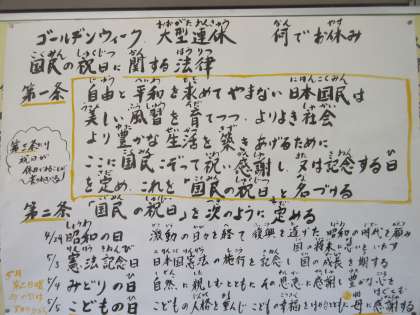 ゴールデンウィーク、大型連休　何でお休み
国民の祝日に関する法律
第一条　自由と平和を求めてやまない日本国民は
美しい風習を育てつつ、よりよき社会
より豊かな生活を築きあげるために
ここに国民こぞって祝い、感謝し、又は記念する日
を定め、これを「国民の祝日」と名づける
第二条「国民の祝日」を次のように定める
4/29 昭和の日　激動の日々を経て、復興を遂げた昭和の時代を顧み
国の将来に思いをいたす
5/3 憲法記念日　日本国憲法の施行を記念し国の成長を期する
5/4 みどりの日　自然に親しむとともにその恩恵に感謝し豊かな心を
5/5 こどもの日　こどもの人格を重んじこどもの幸福をはかるとともに母に感謝する